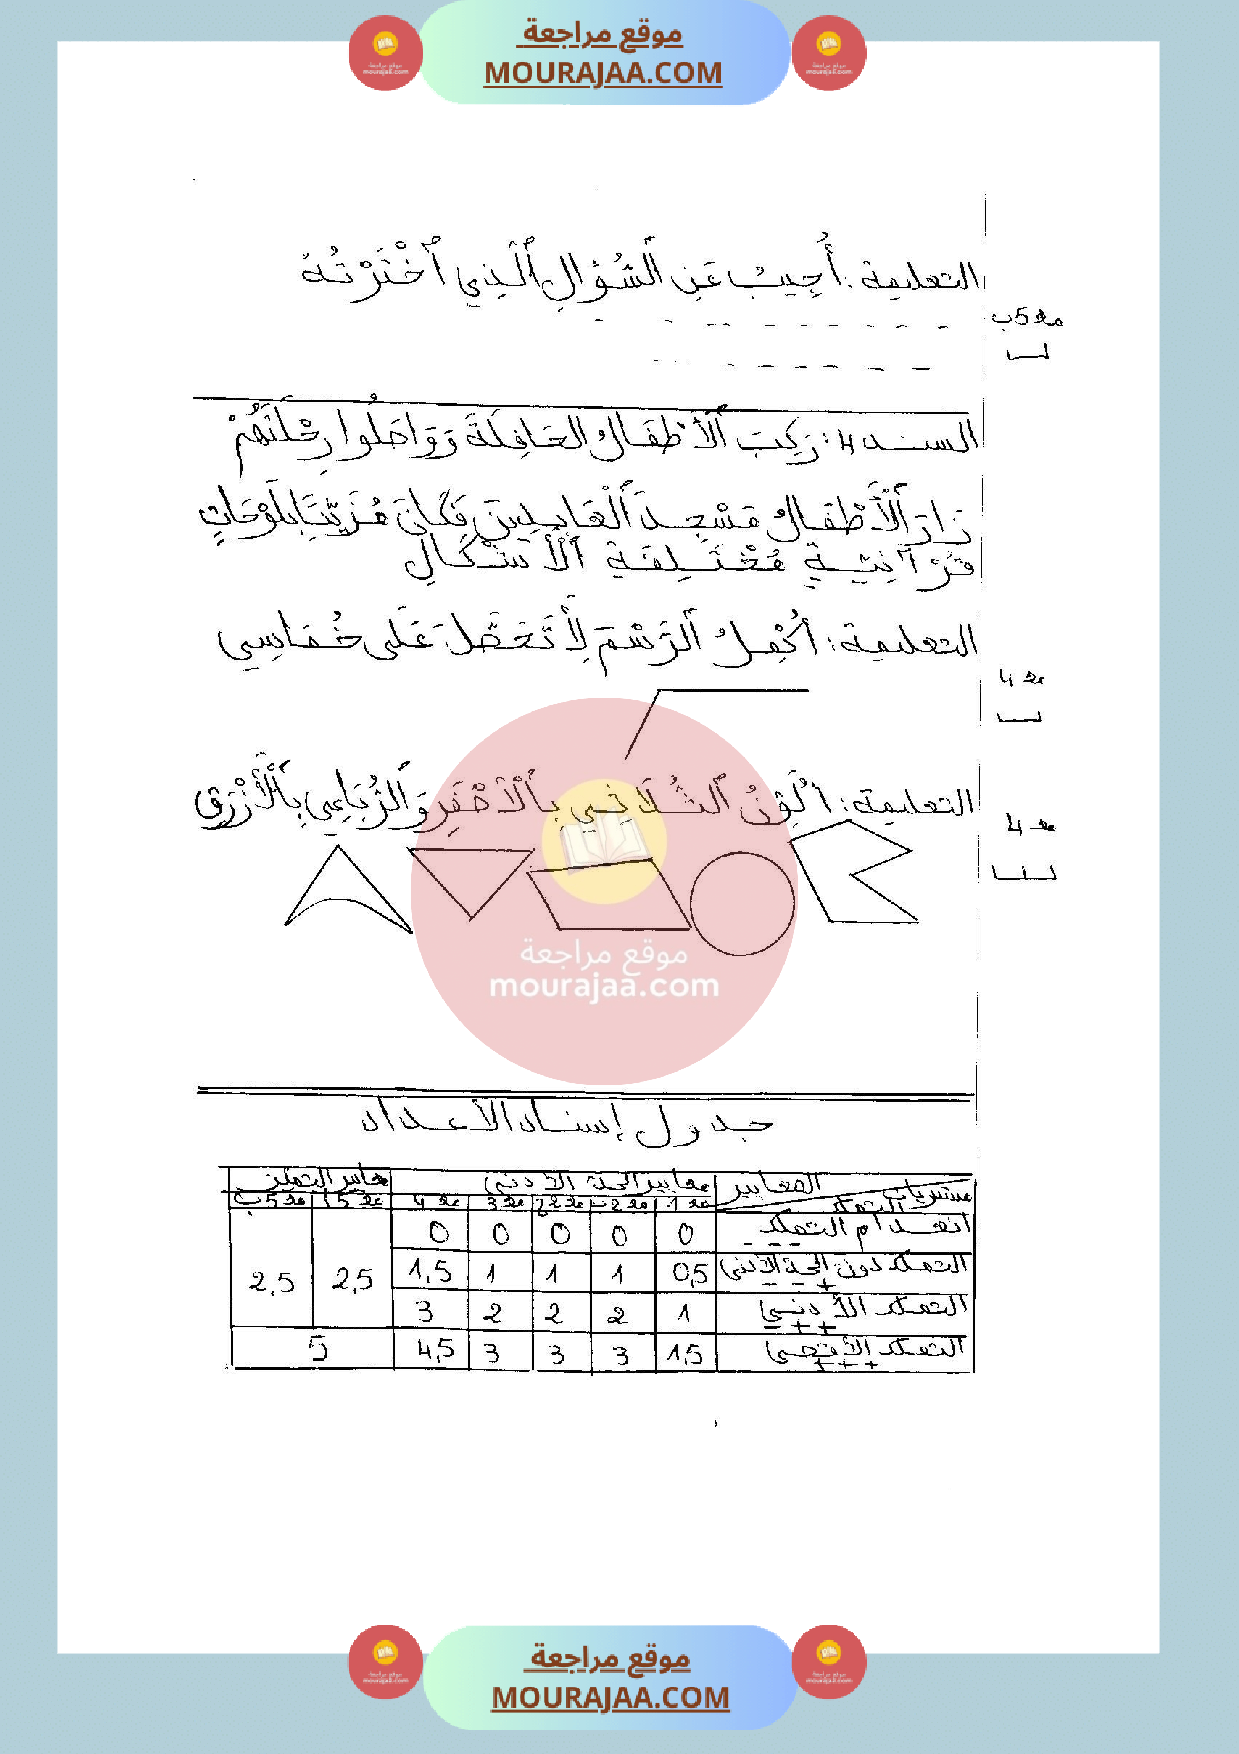 موقع مراجعة
MOURAJAA.COM
التعليمة: أُجِيبُ عَنِ السُّؤَالِ الَّذِي اخْتَرْتُهُ
مع5ب
السند 4: رَكِبَ الْأَطْفَالُ الحَافِلَةَ وَوَاصَلُوا رِحْلَتَهُمْ
زَارَ الْأَطْفَالُ مَسْجِدَ الْعَابِدِينَ فَكَانَ مُزَيَّنًا بِلَوْحَاتٍ
قُرْآنِيَّةٍ مُخْتَلِفَةِ الْأَشْكَالِ
التعليمة: أُكْمِلُ الرَّسْمَ لِأَتَحَصَّلَ عَلَى خُمَاسِي
مع 4
التعليمة: أُلَوِّنُ الثُّلَاثِي بِالْأَصْفَرِ وَالرُّبَاعِي بِالْأَزْرَقِ
مع 4
موقع مراجعة
mourajaa.com
جدول إسناد الأعداد
المعايير معايير الحد الأدنى معايير التميز
مستويات التملك مع 1 مع 2 مع 3 مع 4 مع 5 مع 5ب
انعدام التملك --- 0 0 0 0 0
التملك دون الحد الأدنى --+ 0,5 1 1 1 1,5 2,5 2,5
التملك الأدنى -++ 1 2 2 2 3
التملك الأقصى +++ 1,5 3 3 3 4,5 5
موقع مراجعة
MOURAJAA.COM